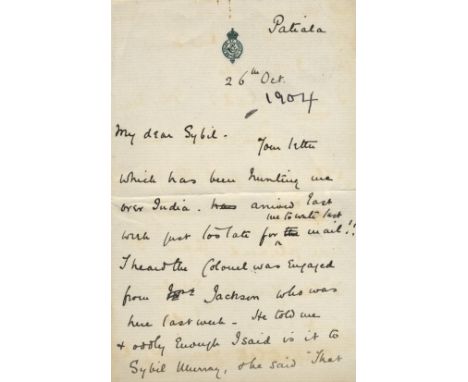 Patiala
26th Oct.
1904
My dear Sybil - Your letter
which has been hunting me
over India. has arrived last
me to write last
week just too late for the mail!!
I heard the Colonel was Engaged
from Jackson who was
here last week - He told me
& oddly Enough I said is it to
Sybil Murray, & he said "That